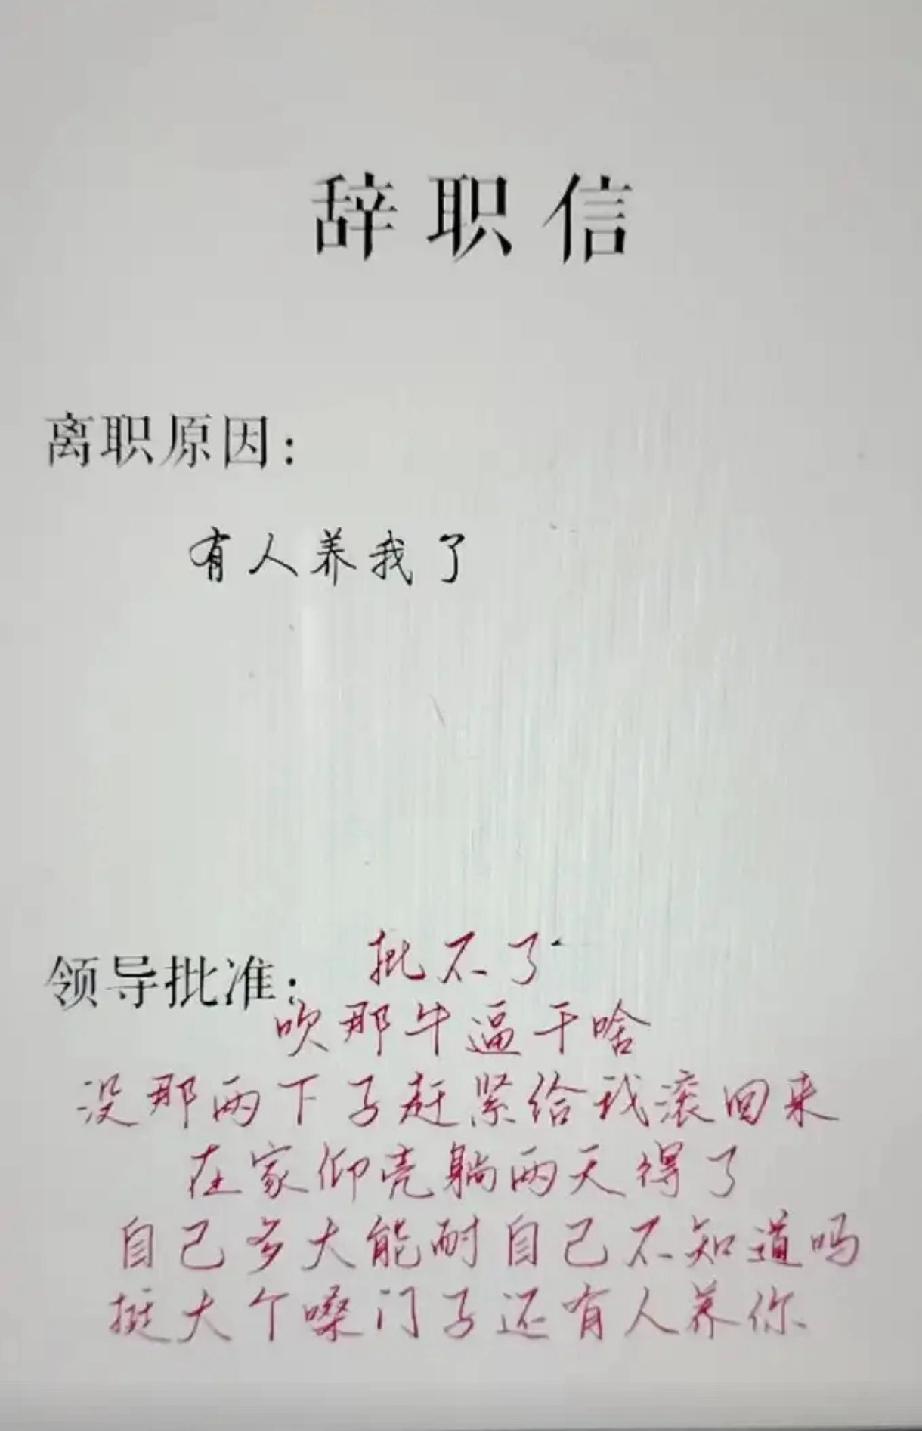 辞职信
离职原因：
有人养我了
领导批准： 批不了
吹那牛逼干啥
没那两下子赶紧给我滚回来
在家仰壳躺两天得了
自己多大能耐自己不知道吗
挺大个嗓门子还有人养你